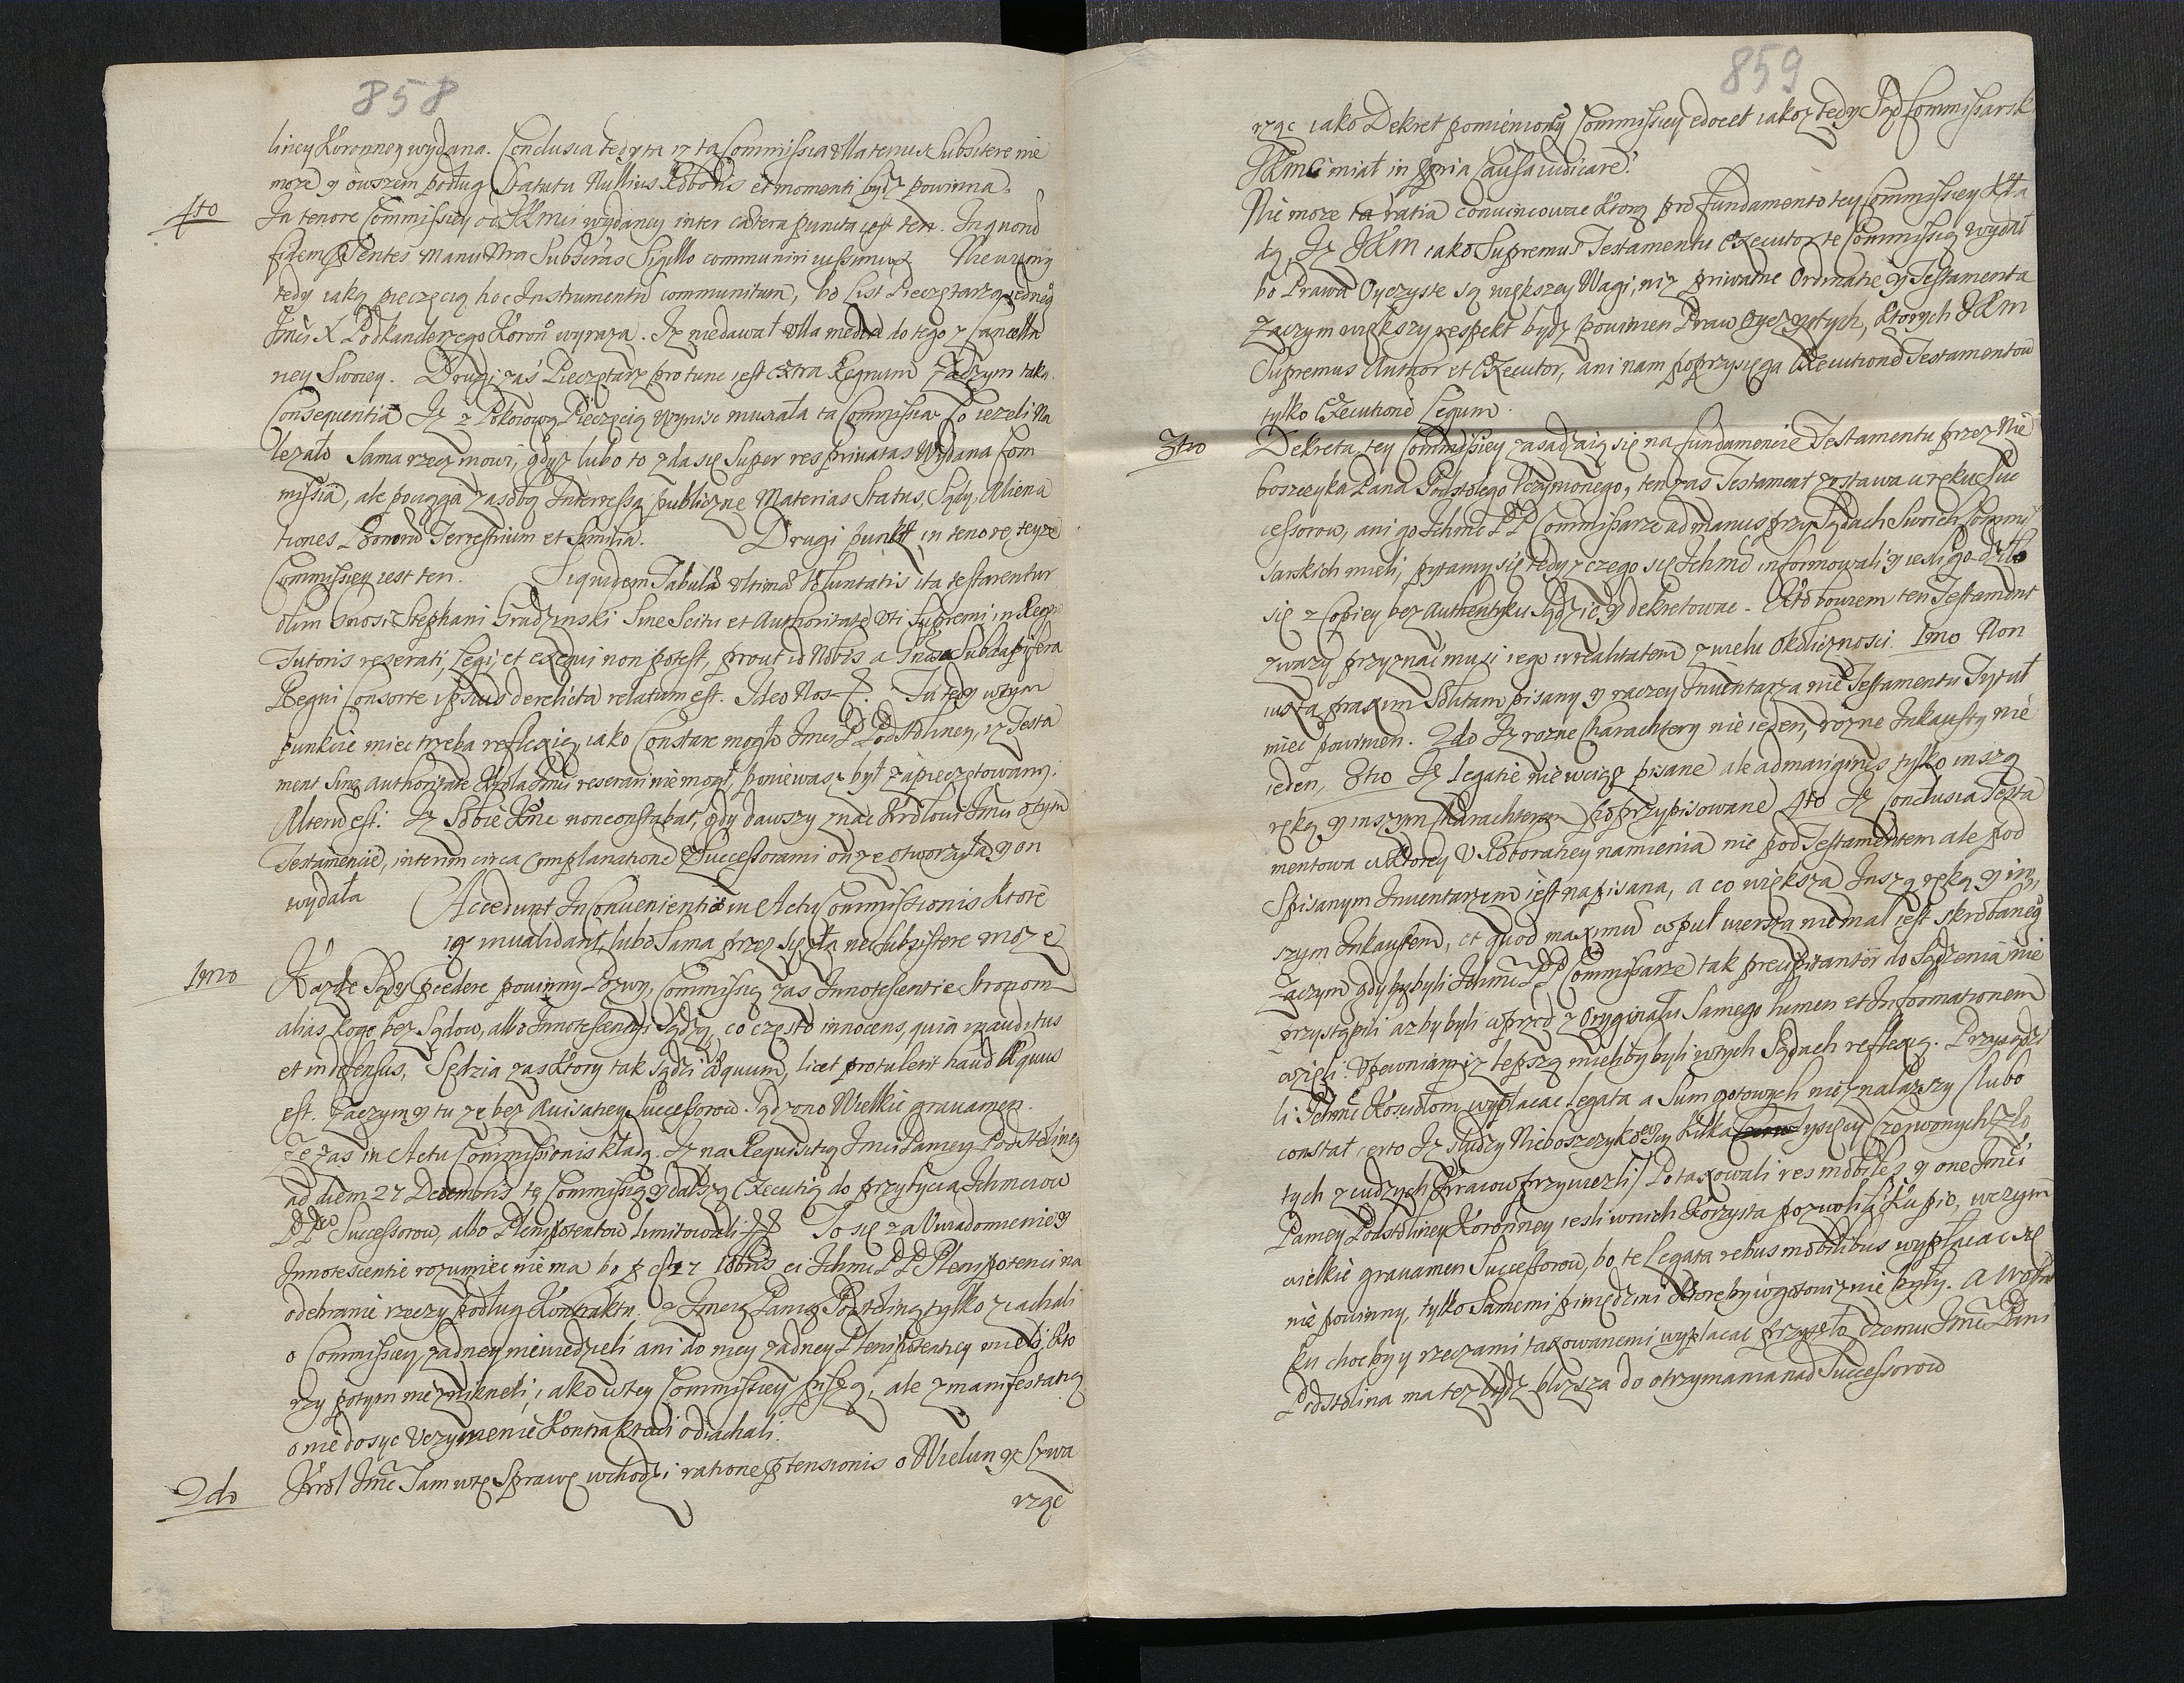 858
liney Koronney wydana. Conclusia tedy ta iż ta Commissia ulla tenus Subsistere nie
moze y owszem podług Statutu Nullius Roboris et momenti bydz powinna.
4to In tenore Commissiey od JKMci wydaney inter cætera puncta iest ten. In quorū
fidem ꝑsentes manu Nra Subscriās Sigillo communiri iussimus. Nie wiemy
tedy iaką pieczęcią hoc Instrumentū communitum, bo List Pieczętarza iednęg
Jmci X Podkanclerzego Koroň wyraza. Iz niedawał ulla media do tego z Cancella
ney Swoiey. Drugi zaś Pieczętarz pro tunc iest extra Regnum Zaczym taka
Consequentia Iz z Pokoiową Pieczęcią wyniść musiała ta Commissia. Co iezeli Na
lezało Sama rzecz mowi, gdyz lubo to zda się Super res priuatas Wydana Com
missia, ale pociąga zasobą Interressa publiczne Materias Status, Sądy, Aliena
tiones Bonorū Terrestrium et Similia. Drugi punkt in tenore teyze
Commissiey iest ten. Siquidem Tabulæ ultimæ Voluntatis ita testarentur
olim Gnosi Stephani Grudzinski Sine Scitu et Authoritate Vti Supremi in Regno
Tutoris reserati, Legi, et exequi non potest, prout id Nobis a Gnosa Subdapifera
Regni Consorte ipsius derelicta relatum est. Ideo Nos. Tu tedy wtym
punkcie miec trzeba reflexię, iako Constare mogło Jmci P Podstoliney, iz Testa
ment sine authoritate reserari nie mogł, poniewaz był zapieczętowany.
Alterū est. Iz Sobie Ktne non constabat, gdy dawszy znać Krolowi Jmci otym
Testamencie, interim circa Complanationē z Successorami on ze otworzyła y on
wydała Accedunt Inconuenientiæ in Actu Commissionis ktore
ią inualidant, lubo Sama przez się ta nec subsistere moze
1mo Kazde Sądy præcedere powinny Pozwy, Commissią zas Innotescentie
alias kogo bez Sądow, albo Innotescentiey Sądzą, co często innocens, quia inauditus
et indefensus, Sędzia zas ktory tak Sądzi Æquum, licet protulerit haud Æquus
est. Zaczym y tu ze bez Auisatiey Successorow Sądzono Wielkie grauamen.
Ze zas in Actu Commissionis kładą. Iz na Requisitią Jmci Paniey Podstoliney
ad diem 27 Decembris tę Commissią y dalszą Executią do przybycia Jchmciow
PPow Successorow, albo Plenipotentow limitowali. To się za Uwiadomienie y
Innotescentie rozumiec nie ma bo 27 Xbris ci Jchmc PP Plenipotenci na
odebranie rzeczy podług Kontraktu, z Jmcią Panią Podstoliną tylko ziachali
o Commissiey zadney niewiedzieli ani do niey zadney Plenipotentiey mieli, kto
rzy potym nie znikneli, iako wtey Commissiey piszą, ale z manifestatią
o nie dosyc Uczynienie Kontraktowi odiachali.
2do Krol Jmć Sam wtę Sprawę wchodzi ratione ꝑtensionis o Wielun y Szwa
rzęc
859
rzęc iako Dekret pomienioney Commissiey edocet iakoz tedy Sąd Commissarsk
JKMci miał in ꝓpria Causa iudicare.
Nie moze ta ratia conuincowac ktorą pro fundamento tey Commissiey kła
dą, Iz JKM iako Supremus Testamentu Executor te Commissią wydał
bo Prawa Oyczyste są większey Wagi, niz priwatne Ordinatie y Testamenta
Zaczym większy respekt bydz powinien Praw Oyczystych, ktorych JKM
Supremus Author et Executor, ani nam poprzysięga Executionē Testamentow
tylko Executionē Legum.
3tio Dekreta tey Commissiey zasadzaią się na fundamencie Testamentu przez Nie
boszczyka Pana Podstolego Uczynionego, ten zas Testament zostawa w ręku Suc
cessorow, ani go Jchmć PP Commissarze ad manus przy Sądach Swoich Commis
sarskich mieli, pytamy się tedy zczego się Jchmć informowali y iesli go dziło
się z Copiey bez Authentyku Sądzić y dekretowac. Kto bowiem ten Testament
zwazy przyznać musi iego irrealitatem z wielu Okoliczności. 1mo Non
iuxta praxim Solutam pisany y raczey Inwentarza nie Testamentu Tytuł
miec powinien. 2do Iz rozne Charachtery nie ieden, rozne Inkausty nie
ieden, 3tio Iz legatie nie wciąz pisane ale ad margines tylko inszą
ręką y inszym Charachterem poprzypisowane 4to Iz Conclusia Testa
mentowa w ktorey o Roboratiey namienia nie pod Testamentem ale pod
Spisanym Inuentarzem iest napisana, a co większa Inszą ręką y in
szym Inkaustem, et quod maximū wpuł wiersza niemal iest skrobaneg
Zaczym gdyby byli Jchmć PP Commissarze tak præcipitanter do Sądzenia nie
przystąpili azby byli wprzod z Oryginału Samego lumen et Informationem
wzięli. Upewniamy iz lepszą mieliby byli wtych Sądach reflexią. Przysądzi
li Jchmć Kosciołom wypłacac Legata a Sum gotowych nie znalazszy (lubo
constat certo Iz słudzy Nieboszczykowscy kilka tysięcy Czerwonych Zło
tych z cudzych kraiow przywiezli) Potaxowali res mobiles y one Jmći
Paniey Podstoliney Koronney iesli wnich Korzysta pozwolili Kupic, wczym
wielkie grauamen Successorow, bo te Legata rebus mobilibus wypłacac się
nie powinny, tylko Samemi piniędzmi ktoreby wgotowiznie były. A wosta
tku chocby y rzeczami taxowanemi wypłacac przyszło, czemu Jmć Pani
Podstolina ma tez bydz blizsza do otrzymania nad Successorow